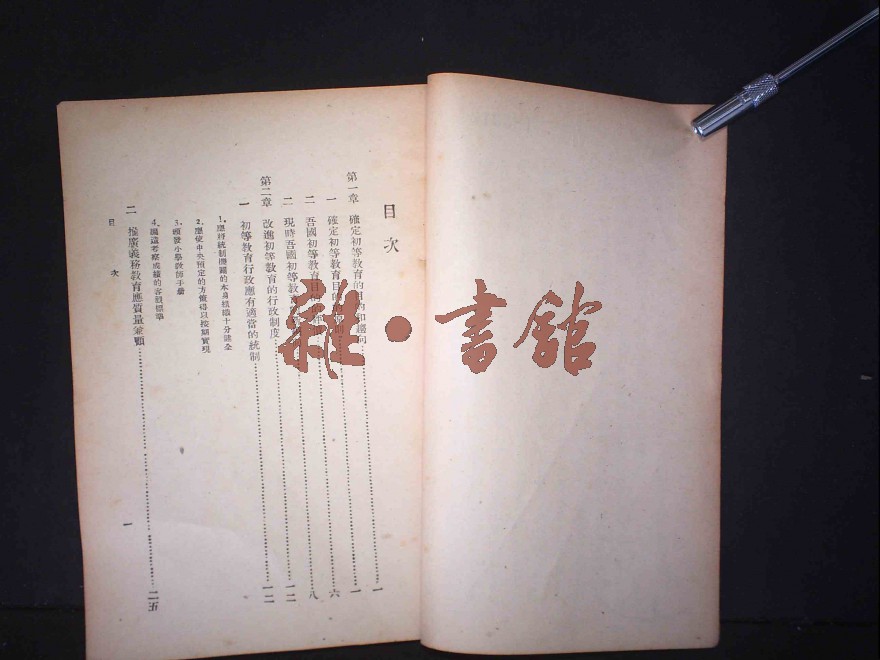 目次
第一章 確定初等教育的目的和趨向……一
一 確定初等教育目的的……六
二 吾國初等教育目的的……八
二 現時吾國初等教育……一二
第二章 改進初等教育的行政制度……一二
一 初等教育行政應有適當的統制……
1. 應將統制機關的本身組織十分健全
2. 應使中央預定的方策得以按期實現
3. 頒發小學教師手冊
4. 編造考察成績的客觀標準
二 推廣義務教育應質量並顧……二五
目次
一
雜·書館